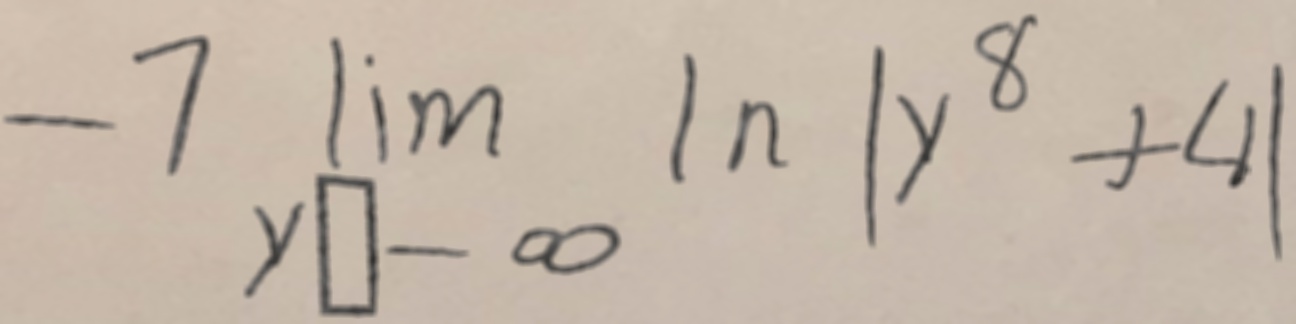 −7 lim ln |y⁸ +4|
y▯−∞